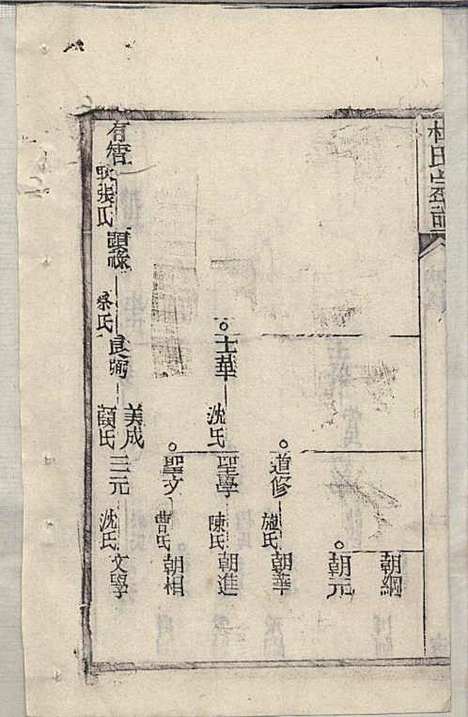 杜氏宗譜
朝綱
朝元
道修 施氏 朝華
士華 沈氏
聖學 陳氏 朝進
聖文 曹氏 朝相
美成
有智 張氏 顯祿 蔡氏 良弼 顔氏 三元 沈氏 文學